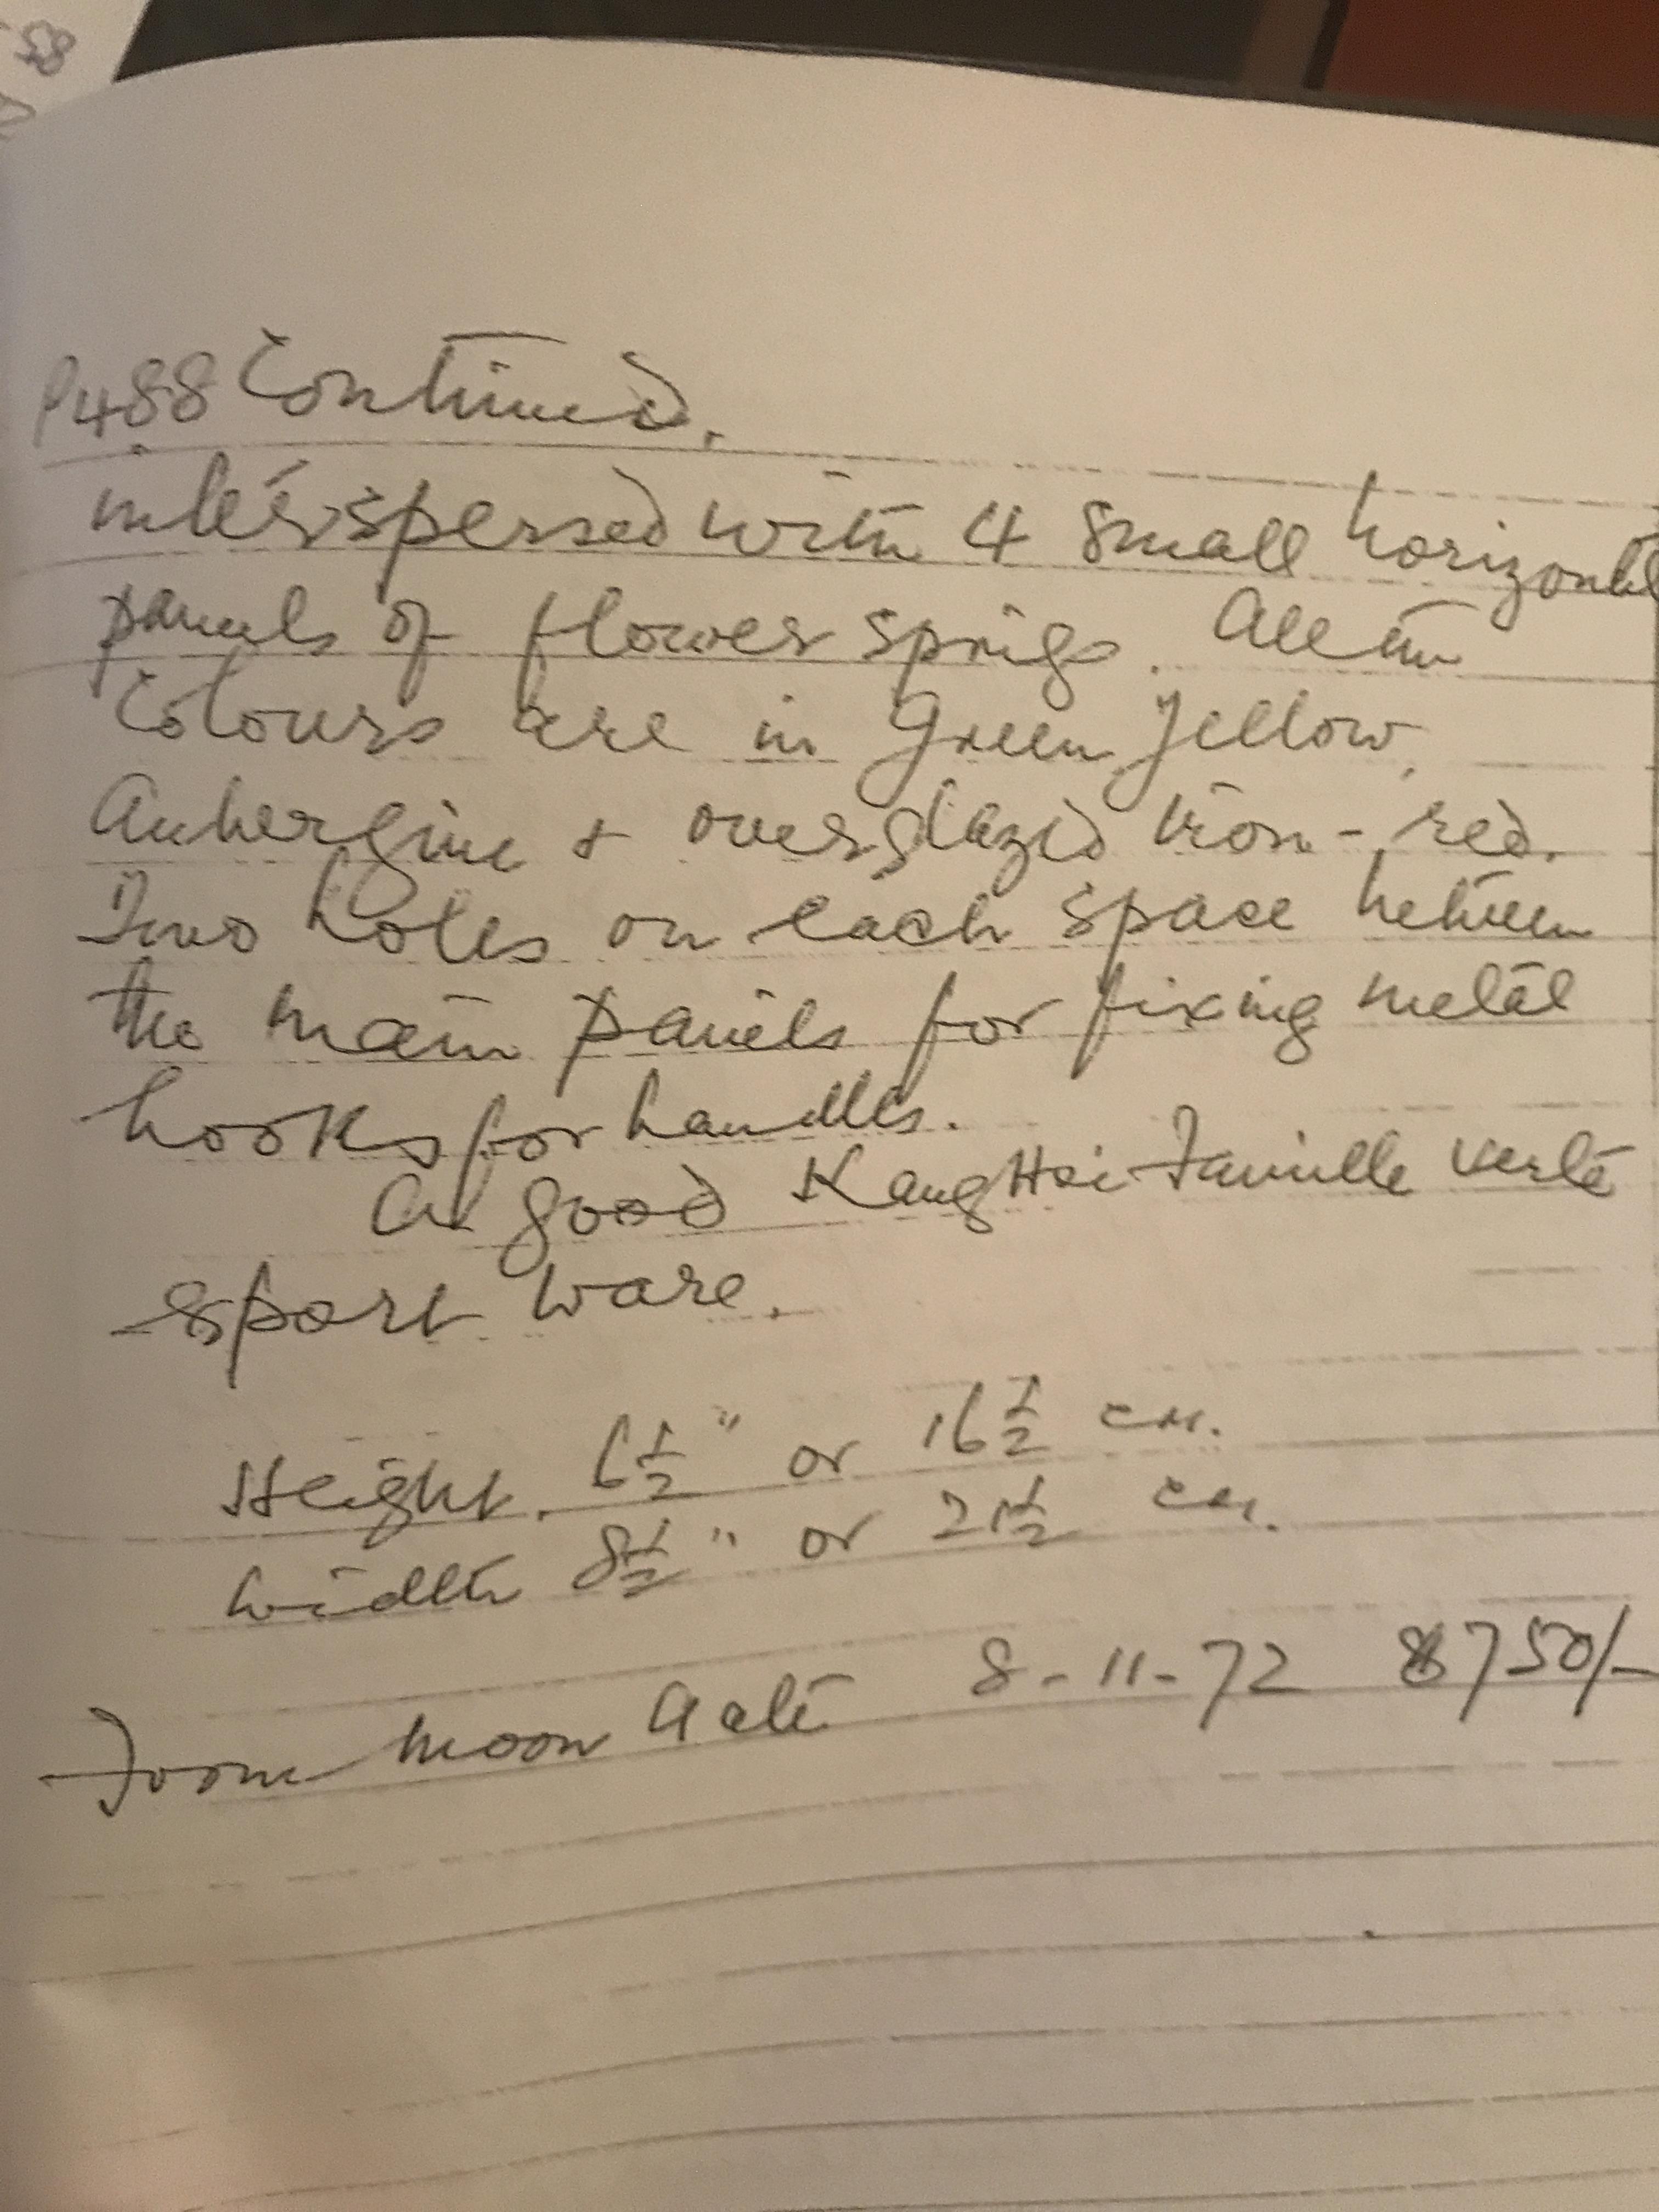 58
P488 Continued.
interspersed with 4 small horizontal
panels of flower sprigs. All the
Colours are in Green, Yellow,
Aubergine + overglazed iron-red.
Two holes on each space between
the main panels for fixing metal
hooks for handles.
A good Kang Hsi Famille verte
export ware.
Height. 6½" or 16½ cm.
Width 8½" or 21½ cm.
From Moon Gate 8-11-72 $750/-